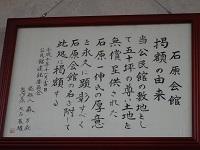 石原会館
掲額の由来
当公民館の敷地とし
て五十坪の尊い土地を
無償呈供された
石原一伸氏の厚意
を永久に顕彰すべく
石原会館の名を附して
此処に掲額する